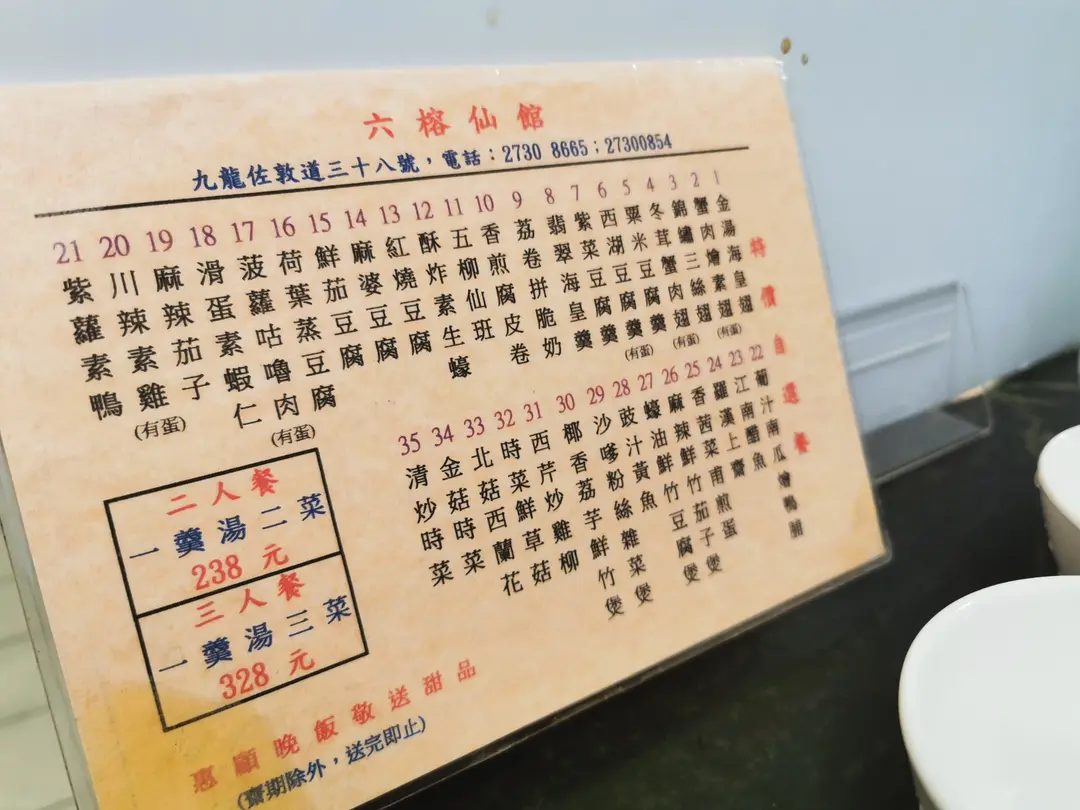 六榕仙館
九龍佐敦道三十八號，電話：2730 8665；27300854
特價自選餐
1 金湯海皇翅
2 蟹肉燴素翅(有蛋)
3 錦鏽三絲翅
4 冬茸蟹肉翅(有蛋)
5 粟米豆腐羹(有蛋)
6 西湖豆腐羹
7 紫菜豆腐羹
8 翡翠海皇羹
9 荔卷拼脆奶
10 香煎腐皮卷
11 五柳仙班
12 酥炸素生蠔
13 紅燒豆腐
14 麻婆豆腐
15 鮮茄豆腐
16 荷葉蒸豆腐
17 菠蘿咕嚕肉(有蛋)
18 滑蛋素蝦仁
19 麻辣茄子
20 川辣素雞(有蛋)
21 紫蘿素鴨
22 葡汁南瓜燴鴨脯
23 江南醋魚
24 羅漢上齋
25 香茜菜甫煎蛋
26 麻辣鮮竹茄子煲
27 蠔油鮮竹豆腐煲
28 豉汁黃魚
29 沙嗲粉絲雜菜煲
30 椰香荔芋鮮竹煲
31 西芹炒雞柳
32 時菜鮮草菇
33 北菇西蘭花
34 金菇時菜
35 清炒時菜
二人餐
一羹湯二菜
238 元
三人餐
一羹湯三菜
328 元
惠顧晚飯敬送甜品
(齋期除外，送完即止)